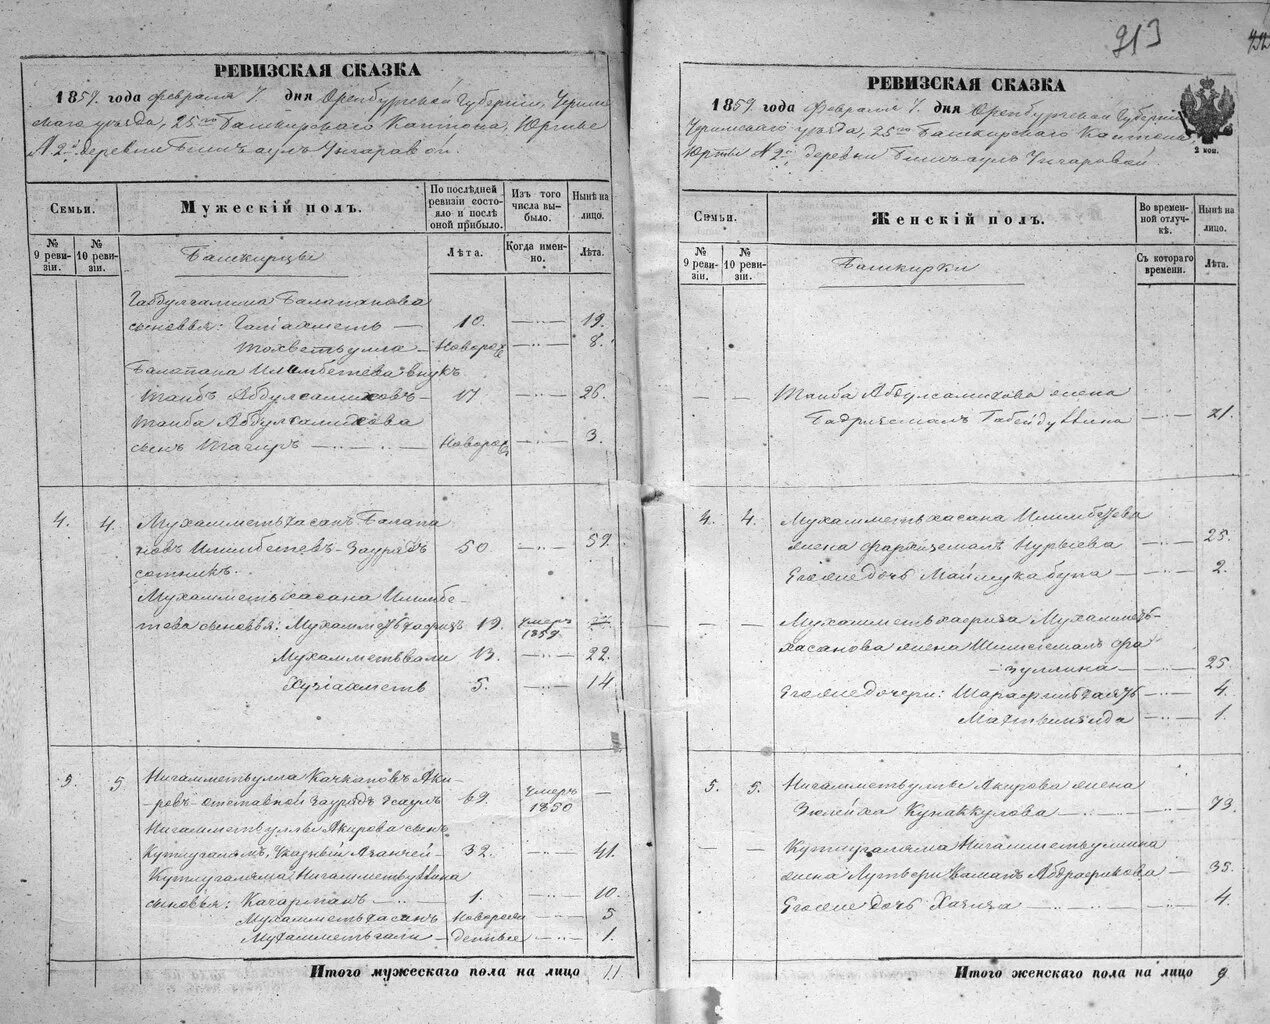 РЕВИЗСКАЯ СКАЗКА
1859. года февраля 7. дня Оренбургской Губернии, Челяб
скаго уезда, 25го Башкирскаго Кантона, Юрты
№ 2й деревни Бишъаулъ Унгаровой.
Семьи.
Мужескій полъ.
По послѣдней ревизіи состояло и послѣ оной прибыло.
Изъ того числа выбыло.
Нынѣ на лицо.
№ 9 ревизіи.
№ 10 ревизіи.
Башкирцы
Лѣта.
Когда именно.
Лѣта.
Габдулгалима Балапанова
сыновья: 10. 19
Новорож 8.
Балапана Илимбетева внукъ
Таибъ Абдулсалиховъ 17 26.
Таиба Абдулсалихова
сынъ Тагиръ Новорож 3.
4. 4. Мухамметьхасанъ Балапа
новъ Илимбетевъ Заурядъ 50 59
сотникъ.
Мухамметьхасана Илимбе-
тева сыновья: Мухамметьхафизъ 19. умеръ 1859.
Мухамметьвали 13. 22.
5. 14
5. 5 Нигамметьулла Качкановъ Аки-
ровъ отставной Заурядъ Эсаулъ 69. умеръ 1850 —
Нигамметьуллы Акирова сынъ
Кутлугалямъ, Указный Азанчей 32. 41.
Кутлугаляма Нигамметьуллина
сыновья: Качарманъ 1. 10.
Мухамметьхасанъ Новорож 5
Мухамметьгали 1.
Итого мужескаго пола на лицо 11
913
РЕВИЗСКАЯ СКАЗКА
2 коп.
1859. года Февраля 7. дня Оренбургской Губерніи
уезда, 25го Башкирскаго Кантона
Юрты № 2й деревни Бишъаулъ Унгаровой.
Семьи.
Женскій полъ.
Во временной отлучкѣ.
Нынѣ на лицо.
№ 9 ревизіи.
№ 10 ревизіи.
Башкирки
Съ котораго времени.
Лѣта.
— — Таиба Абдулсалихова жена
Бадричамалъ Габейдуллина 21.
4. 4. Мухамметьхасана Илимбетева
жена 25.
Его же дочь Маймукабупа 2.
— — Мухамметьхафиза Мухамметь-
хасанова жена Шамсикамалъ Фа
зуллина 25.
Его же дочери: 4.
1.
5. 5. Нигамметьуллы Акирова жена
Зюлейха Кунаккулова 73.
— — Кутлугаляма Нигамметьуллина
жена Абдрафикова 35.
Его же дочь 4.
Итого женскаго пола на лицо 9